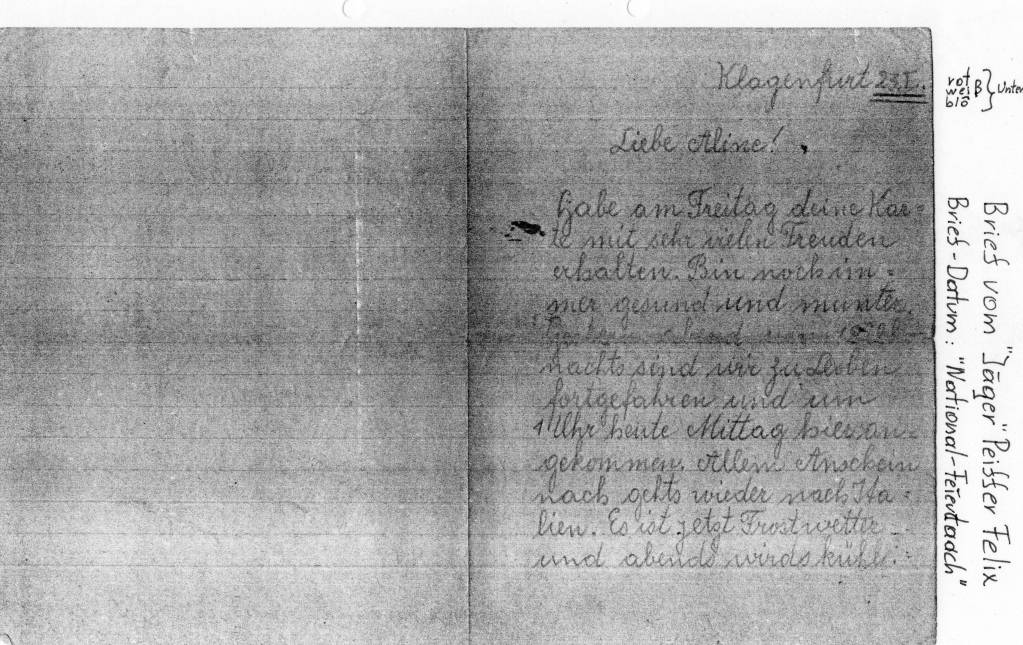 Klagenfurt 23.I.
Liebe Aline!
Habe am Freitag deine Kar=
te mit sehr vielen Freuden
erhalten. Bin noch im=
mer gesund und munter.
abend um
nachts sind wir zu Leoben
fortgefahren und um
1 Uhr heute Mittag hier an=
gekommen. Allem Anschein
nach gehts wieder nach Ita=
lien. Es ist jetzt Frostwetter
und abends wirds kühl.
rot
weiß
blo
} Unter
Brief vom "Jäger" Peiffer Felix
Brief-Datum: "National-Feierdaach"